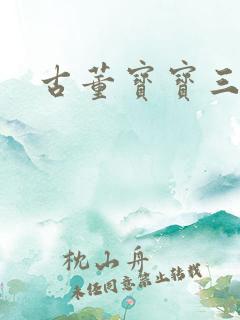 古董寶寶三
枕山舟
未经同意禁止转载